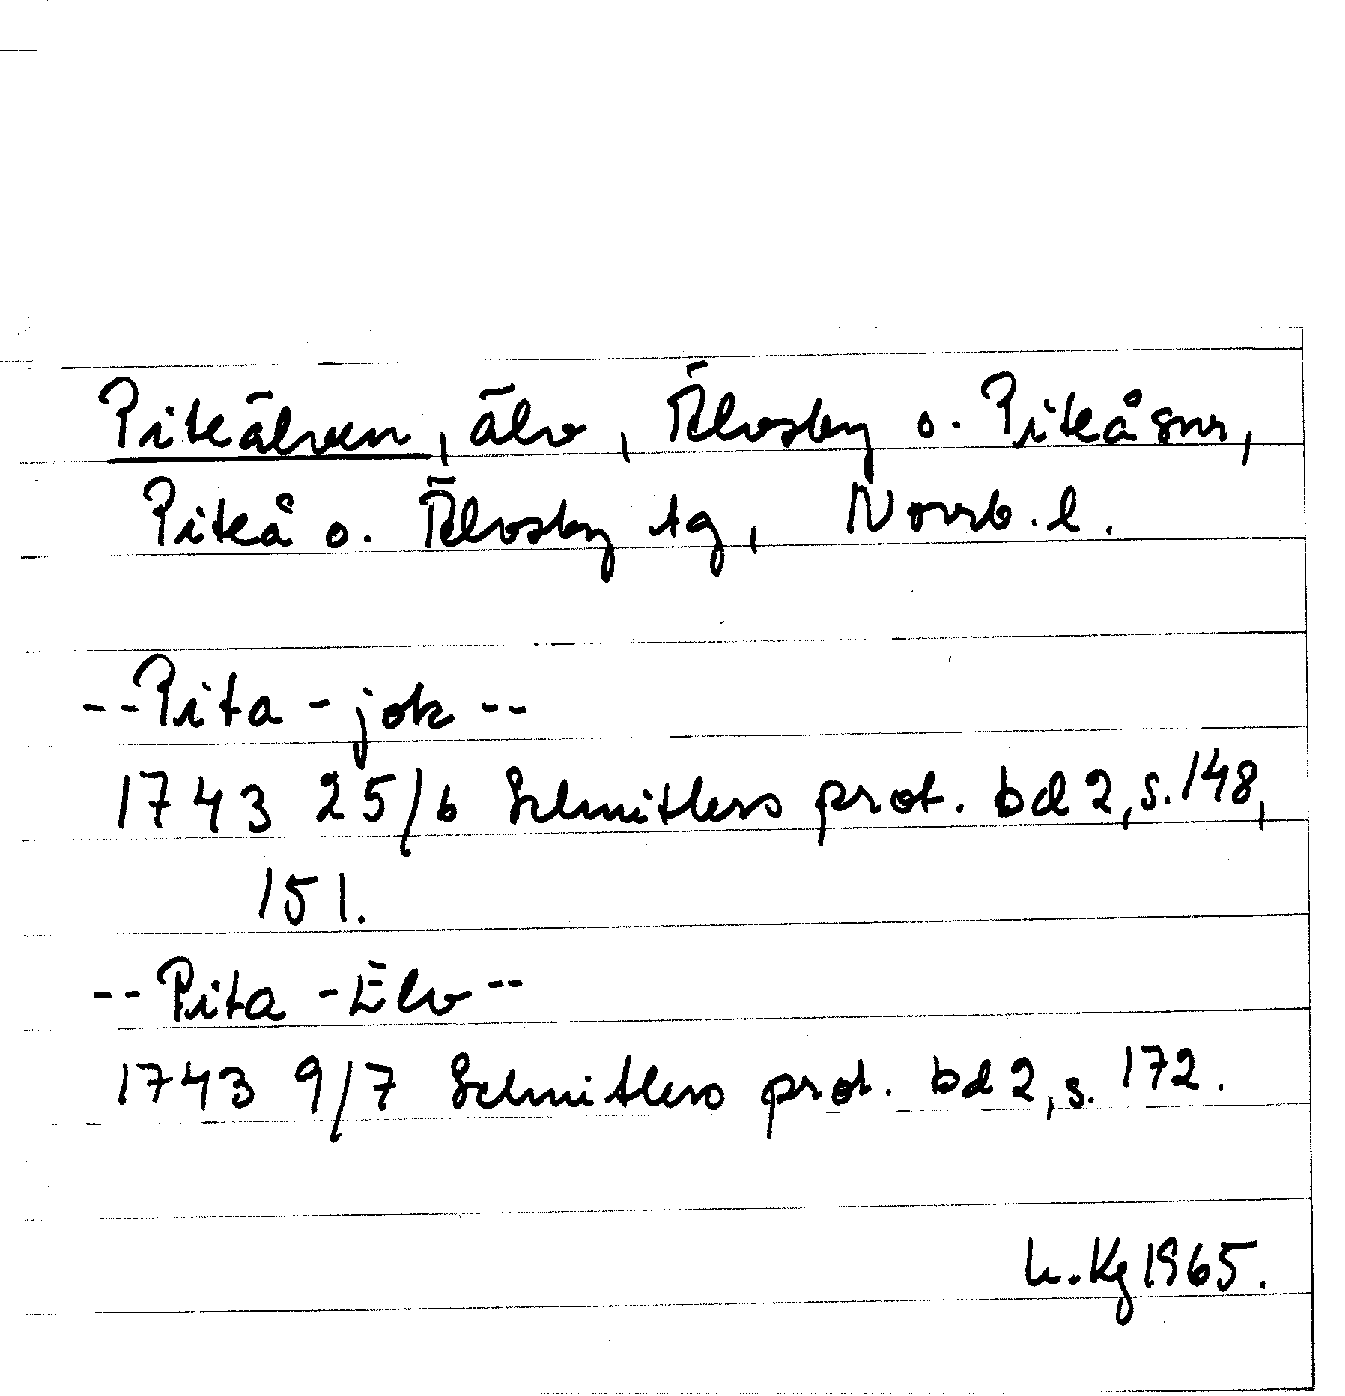 Piteälven, älv, Älvsby o. Piteå snr,
Piteå o. Älvsby tg, Norrb. l.
--Pita-jok--
1743 25/6 Schnitlers prot. bd 2, s. 148,
151.
--Pita-Elv--
1743 9/7 Schnitlers prot. bd 2, s. 172.
L. Kg 1965.